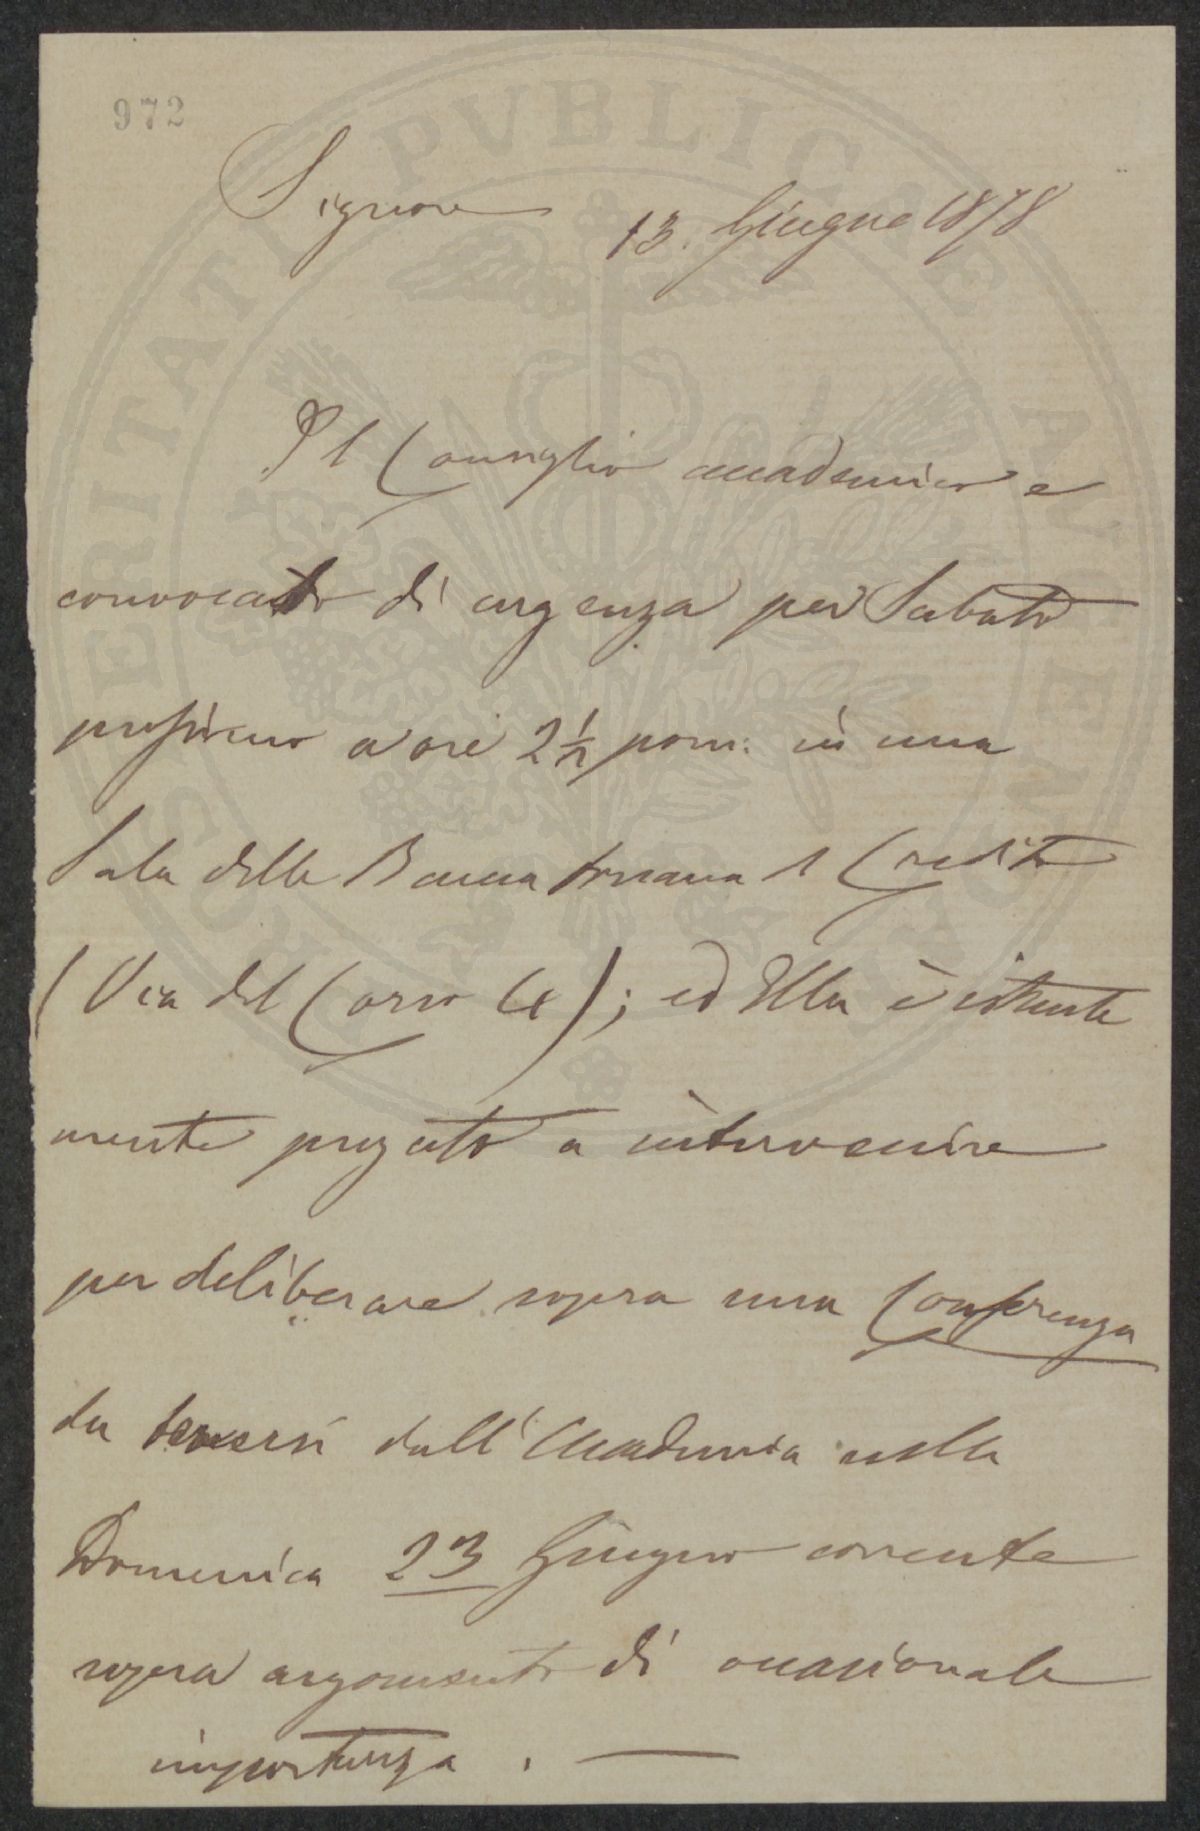 972
Signore
13. Giugno 1878
Il Consiglio accademico e
convocato di urgenza per Sabato
prossimo a ore 2½ pom: in una
Sala della Banca Toscana di Credito
(Via del Corso 4); ed Ella è istante
mente pregato a intervenire
per deliberare sopra una Conferenza
da tenersi dall'Accademia nella
Domenica 23 Giugno corrente
sopra argomento di occasionale
importanza. —